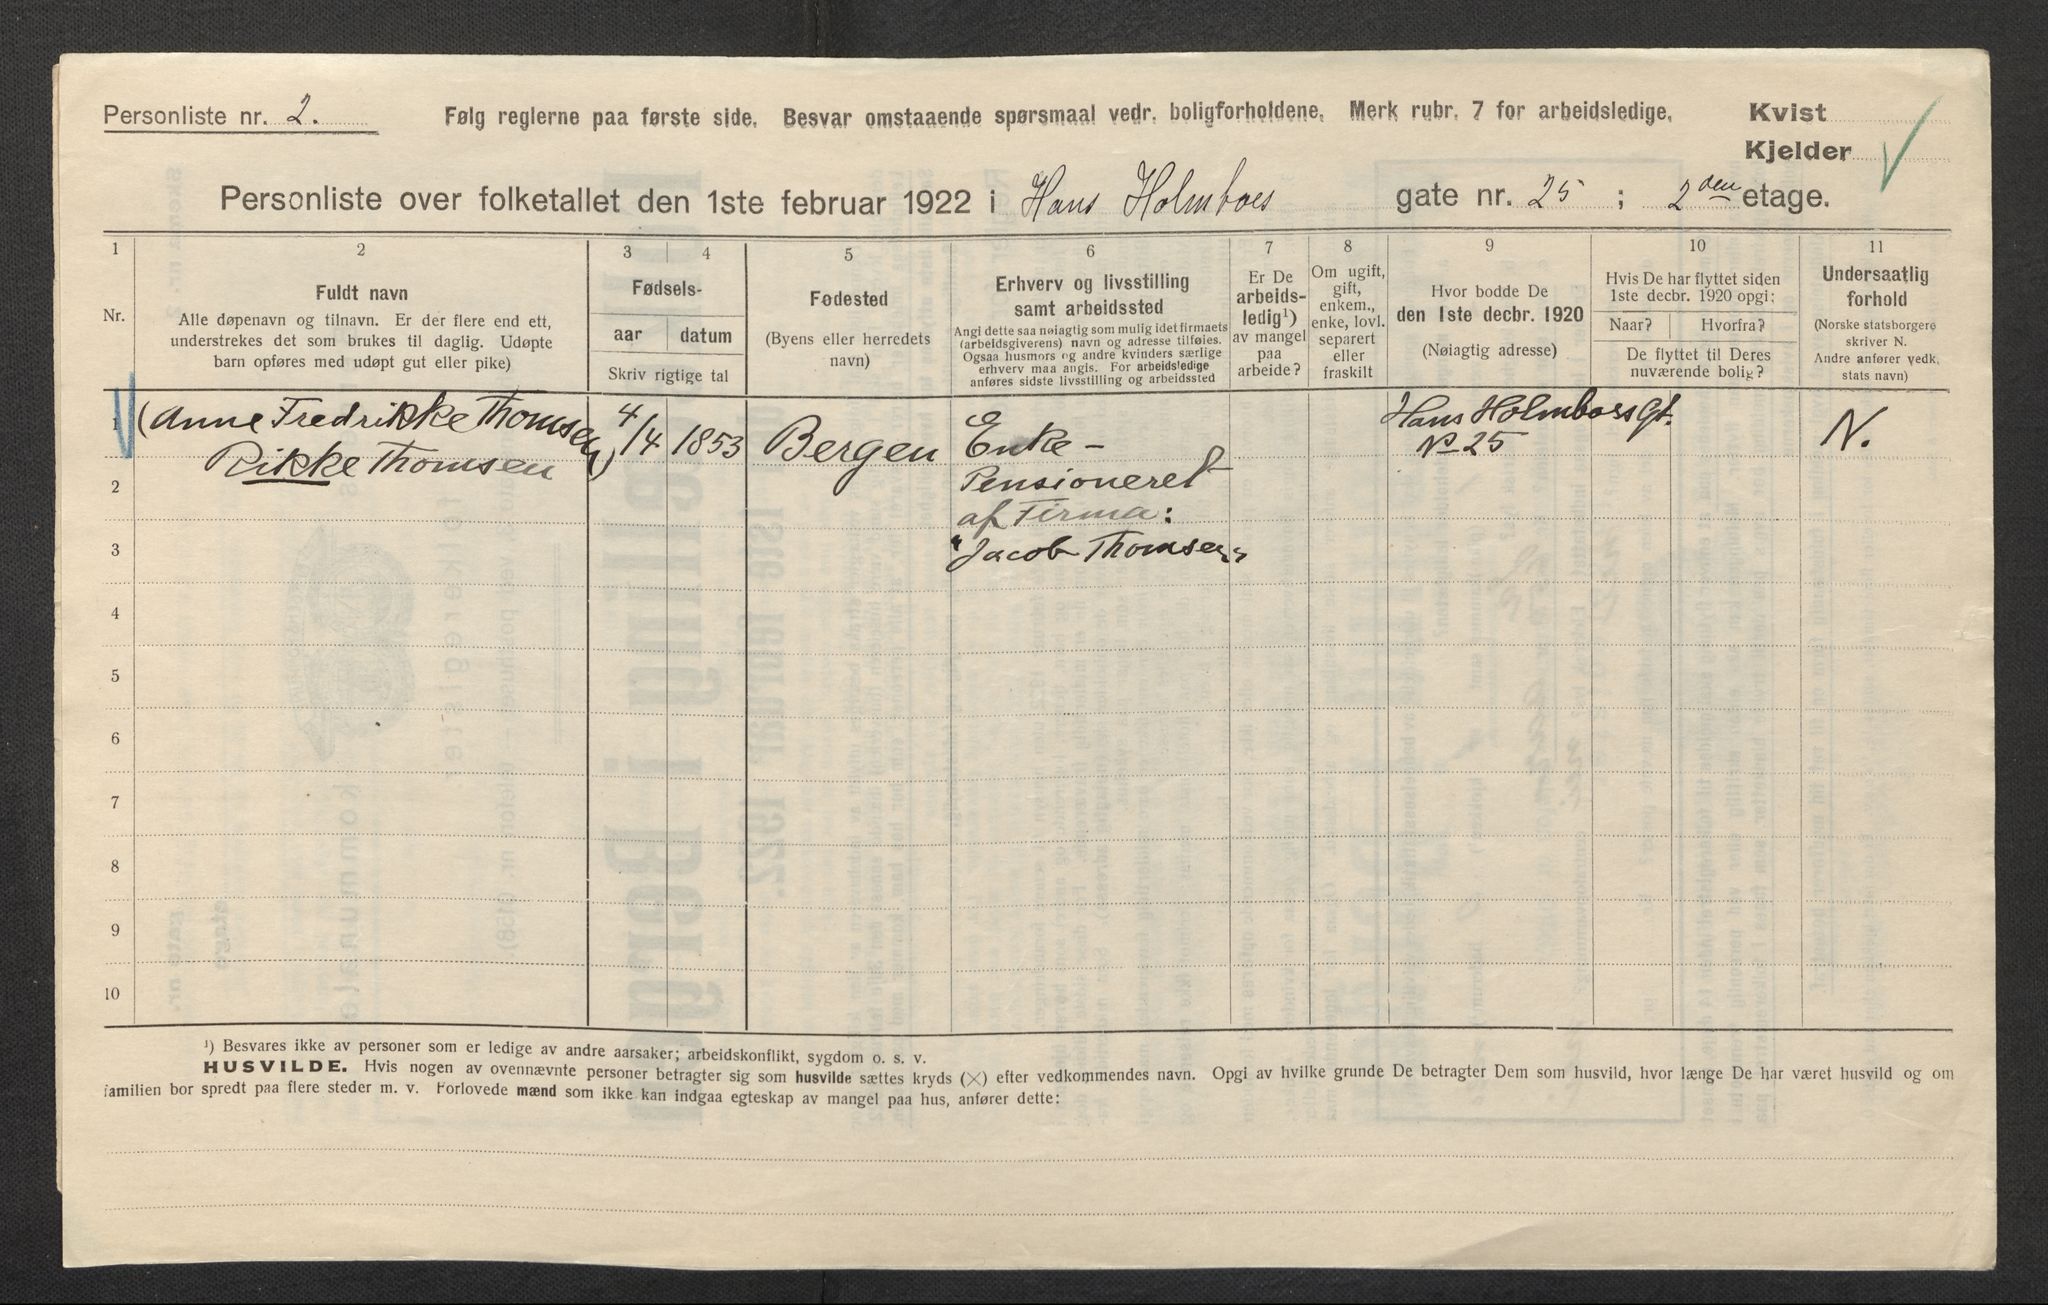 Personliste nr. 2.
Følg reglerne paa første side. Besvar omstaaende spørsmaal vedr. boligforholdene. Merk rubr. 7 for arbeidsledige.
Kvist
Kjelder
Personliste over folketallet den 1ste februar 1922 i Hans Holmboes gate nr. 25 ; 2den etage.
1 2 3 4 5 6 7 8 9 10 11
Nr.
Fuldt navn
Alle døpenavn og tilnavn. Er der flere end ett,
understrekes det som brukes til daglig. Udøpte
barn opføres med udøpt gut eller pike)
Fødsels-
aar datum
Skriv rigtige tal
Fødested
(Byens eller herredets
navn)
Erhverv og livsstilling
samt arbeidssted
Angi dette saa nøiagtig som mulig idet firmaets
(arbeidsgiverens) navn og adresse tilføies.
Ogsaa husmors og andre kvinders særlige
erhverv maa angis. For arbeidsledige
anføres sidste livsstilling og arbeidssted
Er De
arbeids-
ledig¹)
av mangel
paa
arbeide?
Om ugift,
gift,
enkem.,
enke, lovl.
separert
eller
fraskilt
Hvor bodde De
den 1ste decbr. 1920
(Nøiagtig adresse)
Hvis De har flyttet siden
1ste decbr. 1920 opgi:
Naar? Hvorfra?
De flyttet til Deres
nuværende bolig?
Undersaatlig
forhold
(Norske statsborgere
skriver N.
Andre anfører vedk.
stats navn)
1
(Anne Fredrikke Thomsen)
Rikke Thomsen
4/4 1853
Bergen
Enke –
Pensioneret
af Firma:
"Jacob Thomsen"
Hans Holmboesgt.
No 25
N.
2
3
4
5
6
7
8
9
10
¹) Besvares ikke av personer som er ledige av andre aarsaker; arbeidskonflikt, sygdom o. s. v.
HUSVILDE. Hvis nogen av ovennævnte personer betragter sig som husvilde sættes kryds (×) efter vedkommendes navn. Opgi av hvilke grunde De betragter Dem som husvild, hvor længe De har været husvild og om
familien bor spredt paa flere steder m. v. Forlovede mænd som ikke kan indgaa egteskap av mangel paa hus, anfører dette: